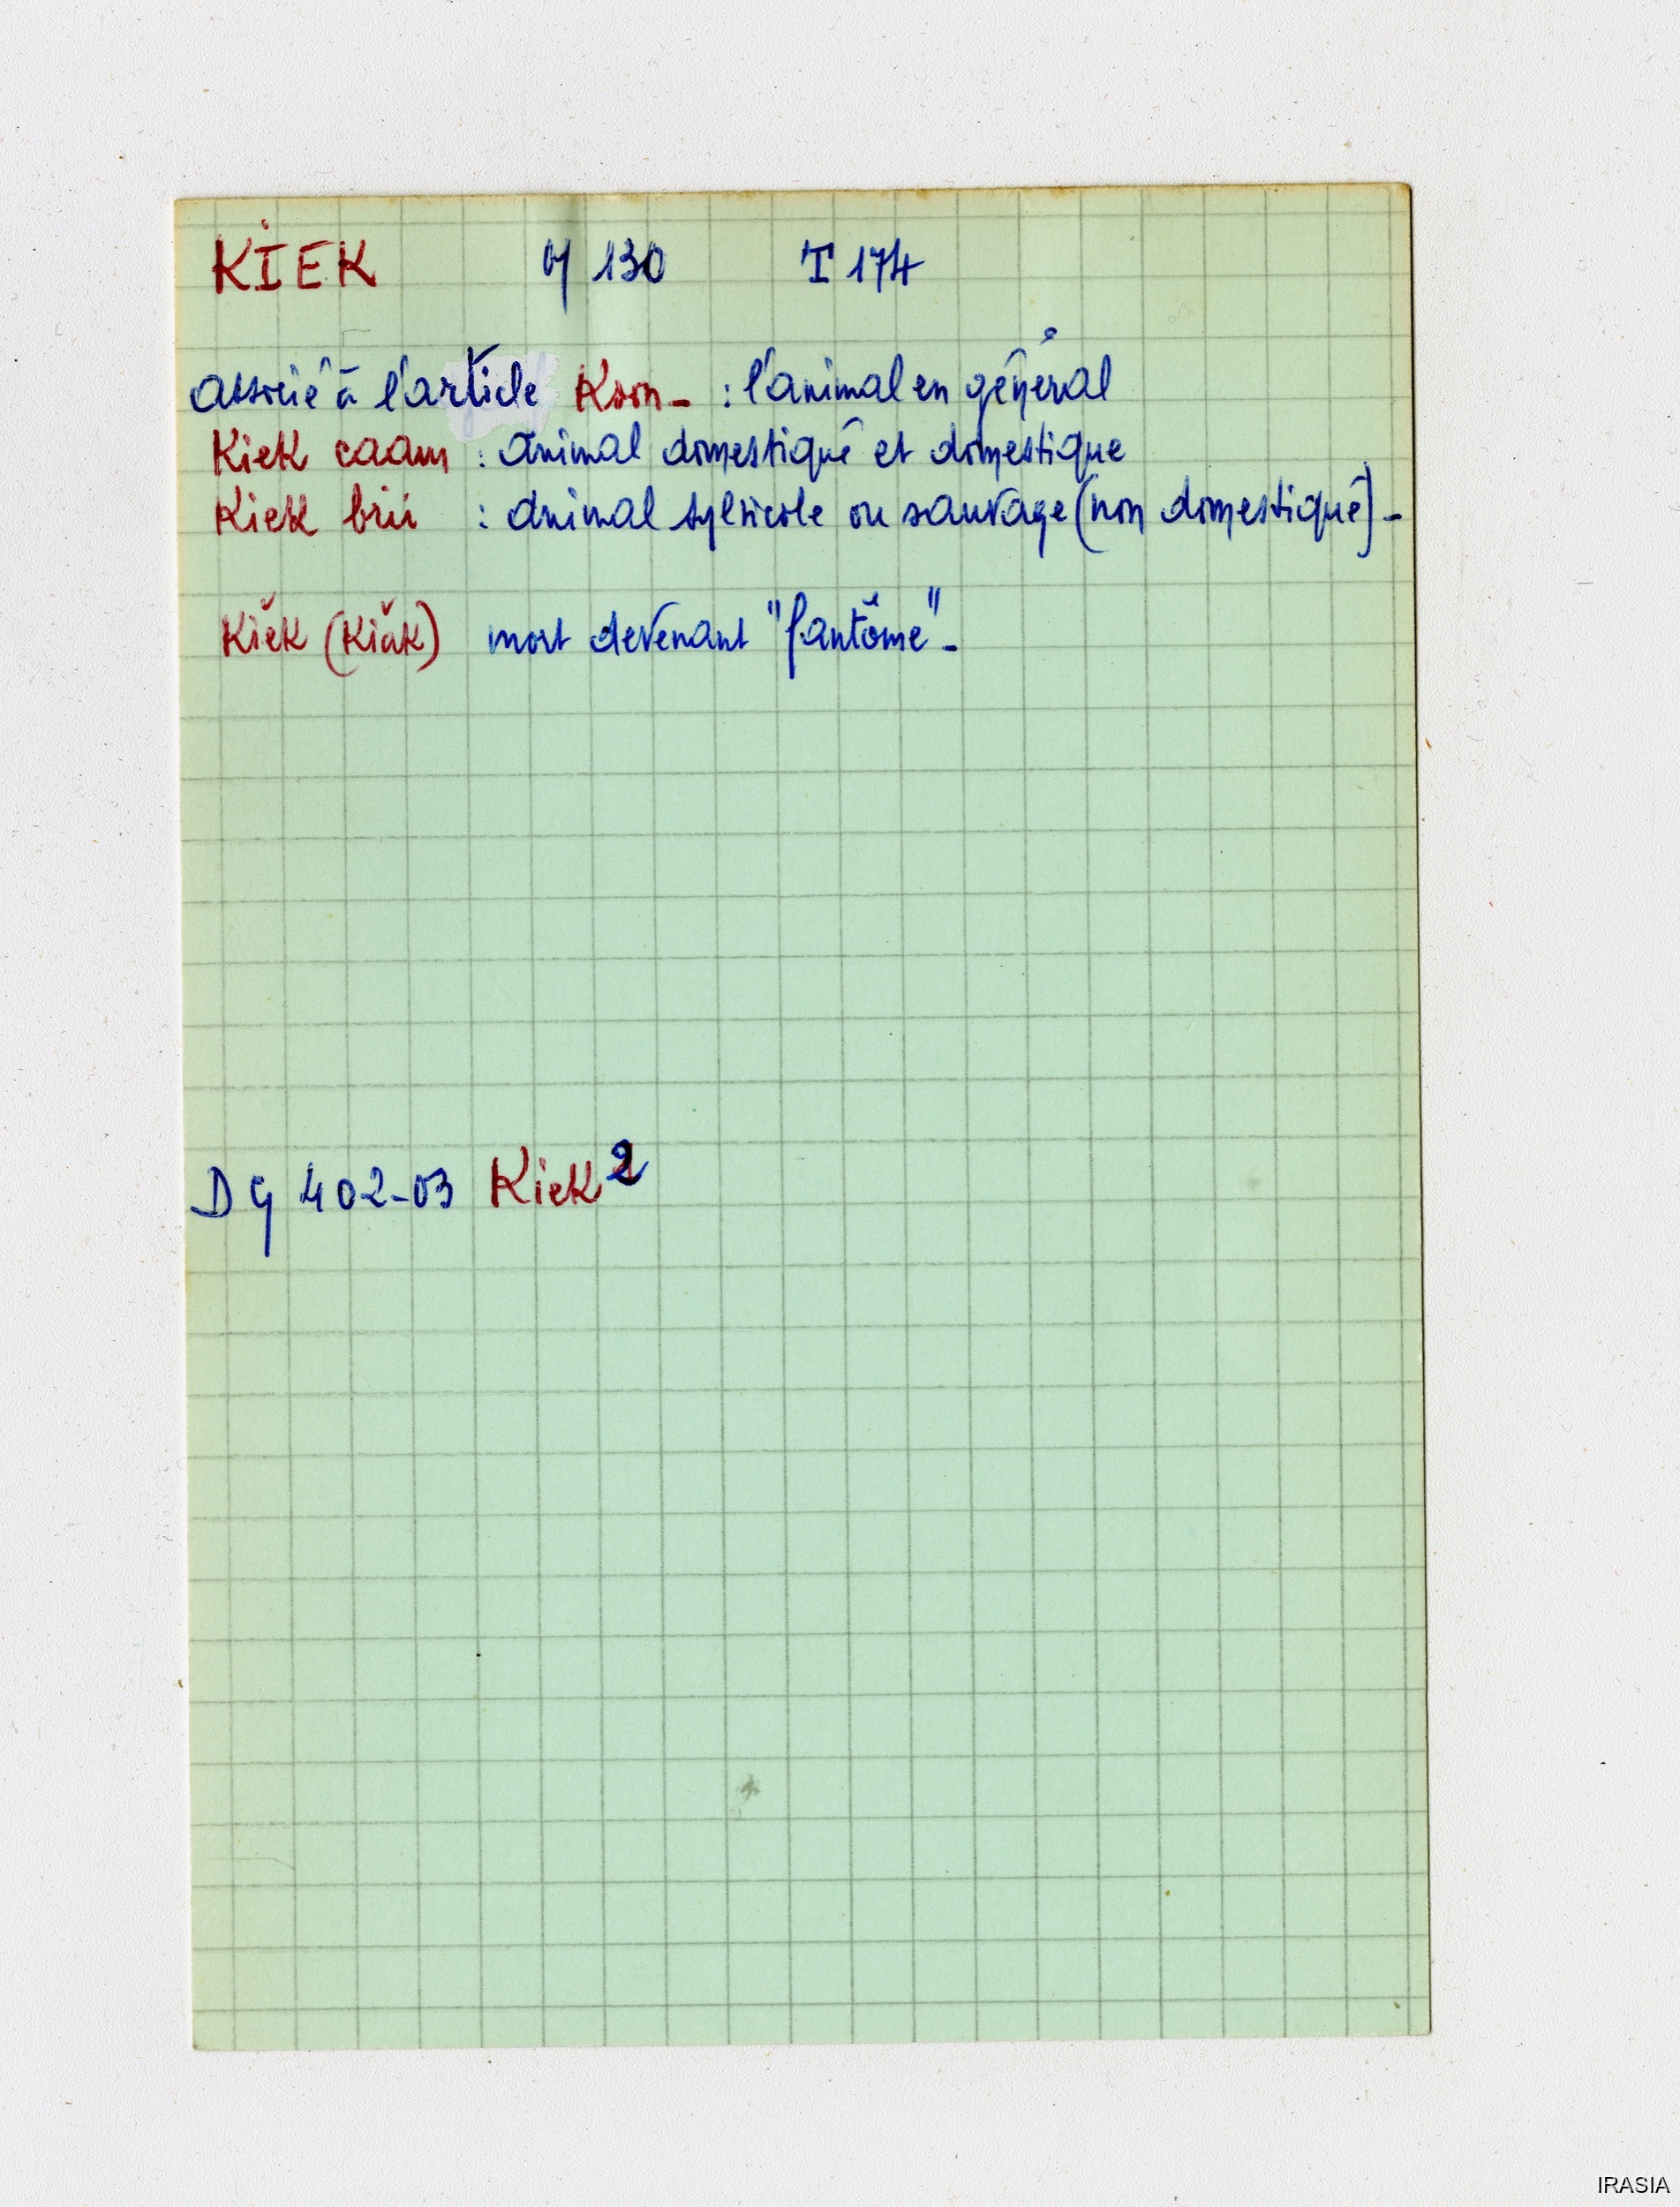 KIEK 130 T 174
associé à l'article Koon_ : l'animal en général
Kiek caam : animal domestiqué et domestique
Kiek brii : animal sylvicole ou sauvage (non domestiqué)_
Kiĕk (Kiăk) mort devenant "fantôme"_
DG 402-03 Kiek 2
IRASIA